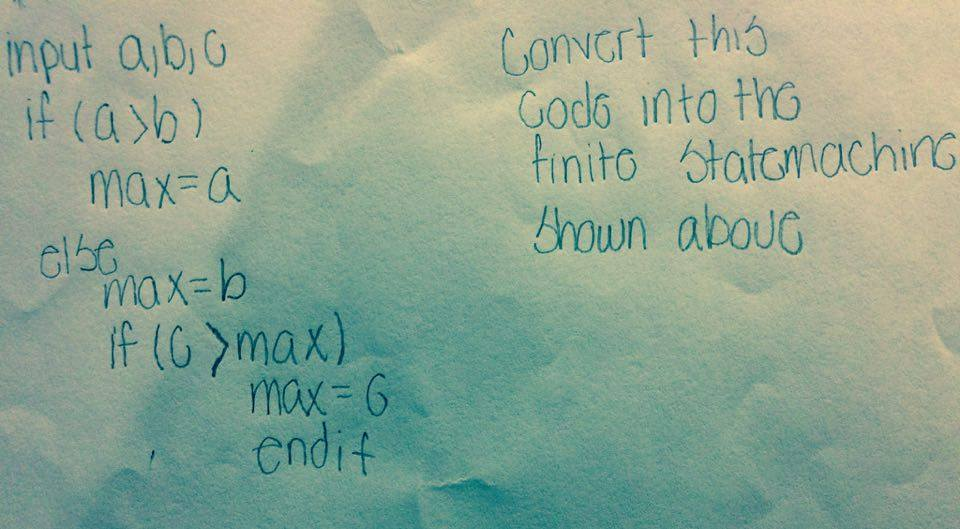 input a,b,c
if (a>b)
max=a
else
max=b
if (c>max)
max=c
endif
Convert this
code into the
finite statemachine
shown above